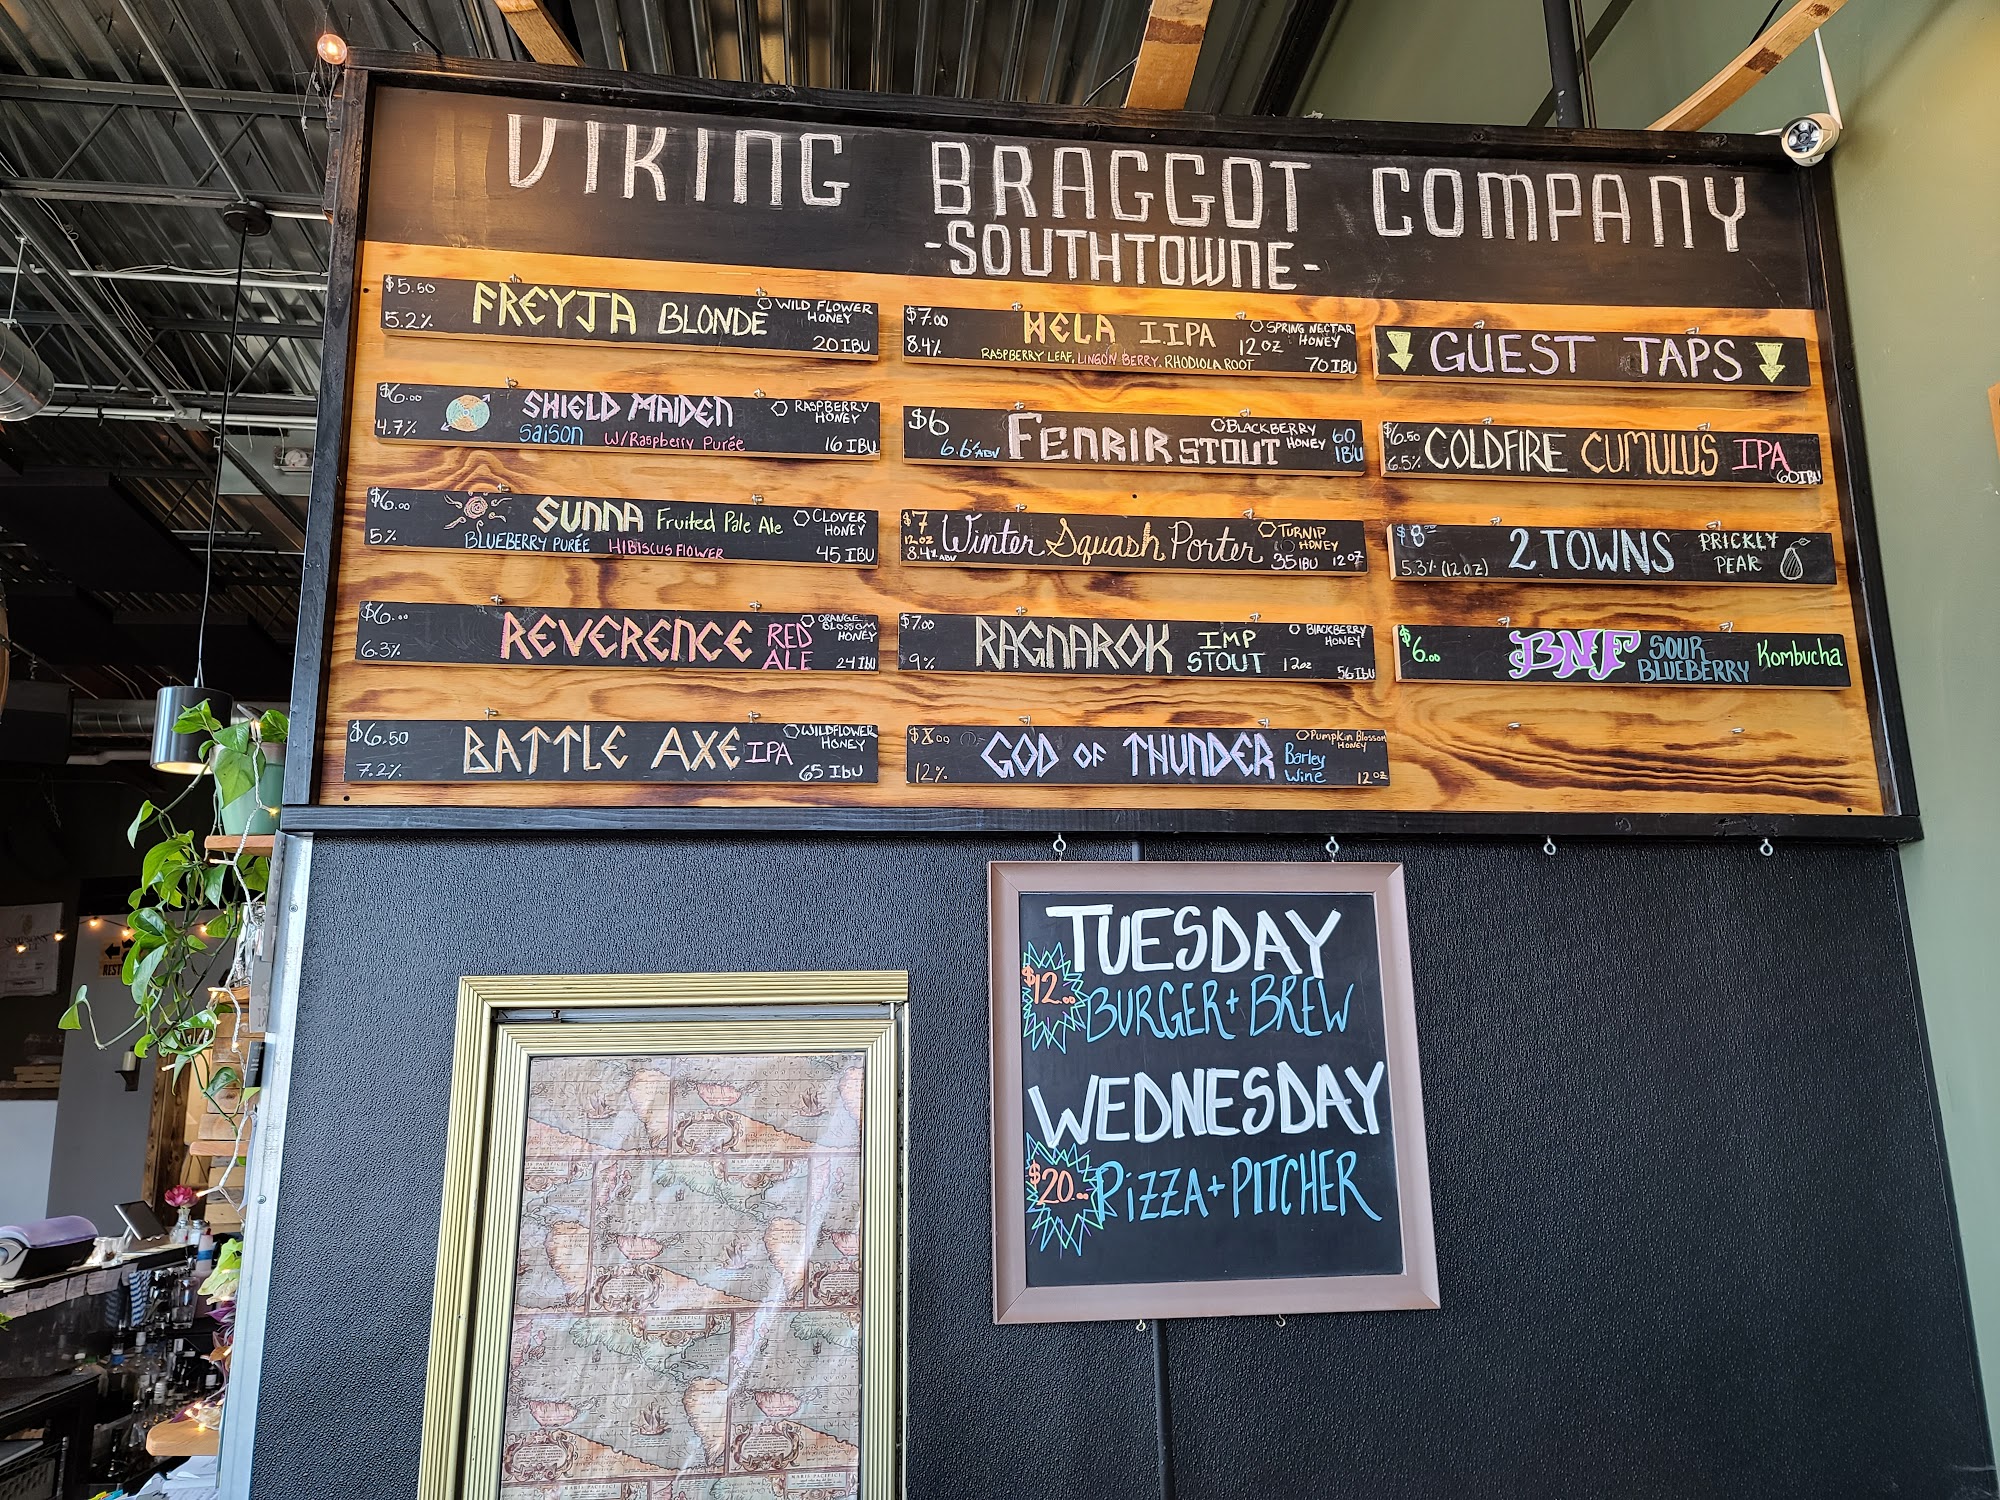 VIKING BRAGGOT COMPANY
-SOUTHTOWNE-
$5.50 FREYJA BLONDE WILD FLOWER HONEY
5.2% 20 IBU
$6.00 SHIELD MAIDEN RASPBERRY HONEY
4.7% Saison W/Raspberry Purée 16 IBU
$6.00 SUNNA Fruited Pale Ale CLOVER HONEY
5% BLUEBERRY PURÉE HIBISCUS FLOWER 45 IBU
$6.00 REVERENCE RED ALE ORANGE BLOSSOM HONEY
6.3% 24 IbU
$6.50 BATTLE AXE IPA WILDFLOWER HONEY
7.2% 65 IbU
$7.00 HELA I.IPA 12 oz SPRING NECTAR HONEY
8.4% RASPBERRY LEAF, LINGON BERRY, RHODIOLA ROOT 70 IBU
$6 FENRIR STOUT BLACKBERRY HONEY
6.6% ABV 60 IBU
$7 12oz Winter Squash Porter TURNIP HONEY
8.4% ABV 35 IBU 12 oz
$7.00 RAGNAROK IMP STOUT BlACKBERRY HONEY
9% 12oz 56 IbU
$8.00 GOD OF THUNDER Barley Wine PUMPKIN Blossom HONEY
12% 12oz
GUEST TAPS
$6.50 COLDFIRE CUMULUS IPA
6.5% 60 IBU
$8 2 TOWNS PRICKLY PEAR
5.3% (12 oz)
$6.00 BNF SOUR BLUEBERRY Kombucha
TUESDAY
$12.00 BURGER + BREW
WEDNESDAY
$20.00 PIZZA + PITCHER